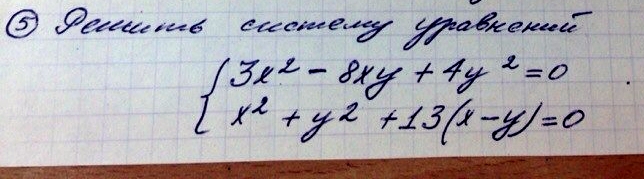 ⑤ Решить систему уравнений
3x² - 8xy + 4y² = 0
x² + y² + 13(x-y) = 0